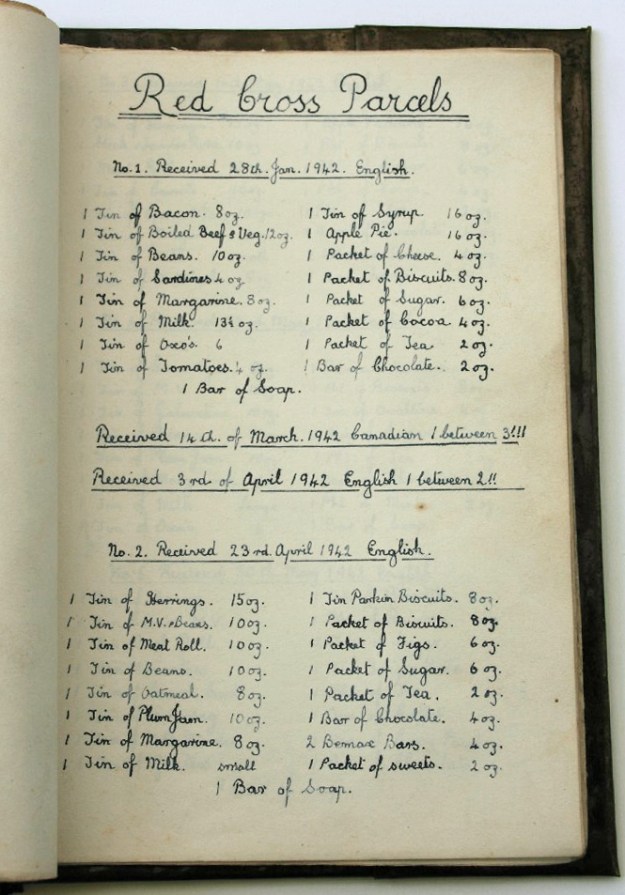 Red Cross Parcels
No. 1. Received 28th. Jan. 1942. English.
1 Tin of Bacon. 8oz. 1 Tin of Syrup. 16oz.
1 Tin of Boiled Beef & Veg. 12oz. 1 Apple Pie. 16oz.
1 Tin of Beans. 10oz. 1 Packet of Cheese. 4oz.
1 Tin of Sardines 4oz. 1 Packet of Biscuits. 8oz.
1 Tin of Margarine. 8oz. 1 Packet of Sugar. 6oz.
1 Tin of Milk. oz. 1 Packet of Cocoa 4oz.
1 Tin of Oxo's 6 1 Packet of Tea 2oz.
1 Tin of Tomatoes. oz. 1 Bar of Chocolate. 2oz.
1 Bar of Soap.
Received 14th. of March. 1942 Canadian 1 between 3!!!
Received 3rd of April 1942 English 1 between 2!!
No. 2. Received 23rd. April 1942 English.
1 Tin of Herrings. 15oz. 1 Tin Parkin Biscuits. 8oz.
1 Tin of M.V. & Beans. 10oz. 1 Packet of Biscuits. 8oz.
1 Tin of Meat Roll. 10oz. 1 Packet of Figs. 6oz.
1 Tin of Beans. 10oz. 1 Packet of Sugar. 6oz.
1 Tin of Oatmeal. 8oz. 1 Packet of Tea. 2oz.
1 Tin of Plum Jam. 10oz. 1 Bar of Chocolate. 4oz.
1 Tin of Margarine. 8oz. 2 Bemax Bars. 4oz.
1 Tin of Milk. small 1 Packet of sweets. 2oz.
1 Bar of Soap.